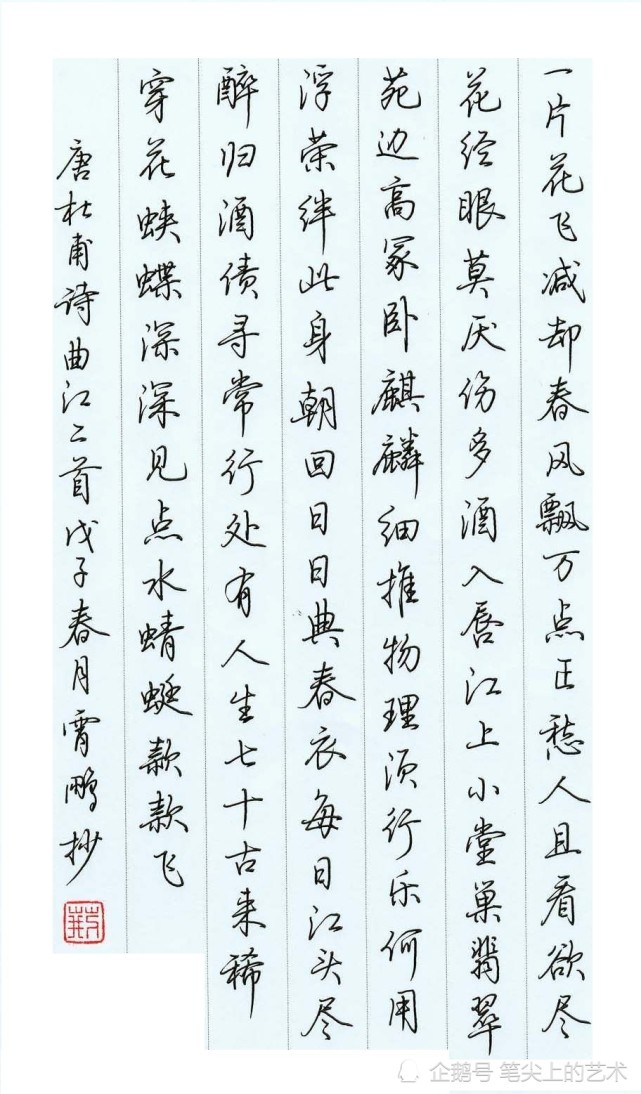 一片花飞减却春风飘万点正愁人且看欲尽
花经眼莫厌伤多酒入唇江上小堂巢翡翠
苑边高冢卧麒麟细推物理须行乐何用
浮荣绊此身朝回日日典春衣每日江头尽
醉归酒债寻常行处有人生七十古来稀
穿花蛱蝶深深见点水蜻蜓款款飞
唐杜甫诗曲江二首戊子春月霄鹏抄
企鹅号 笔尖上的艺术